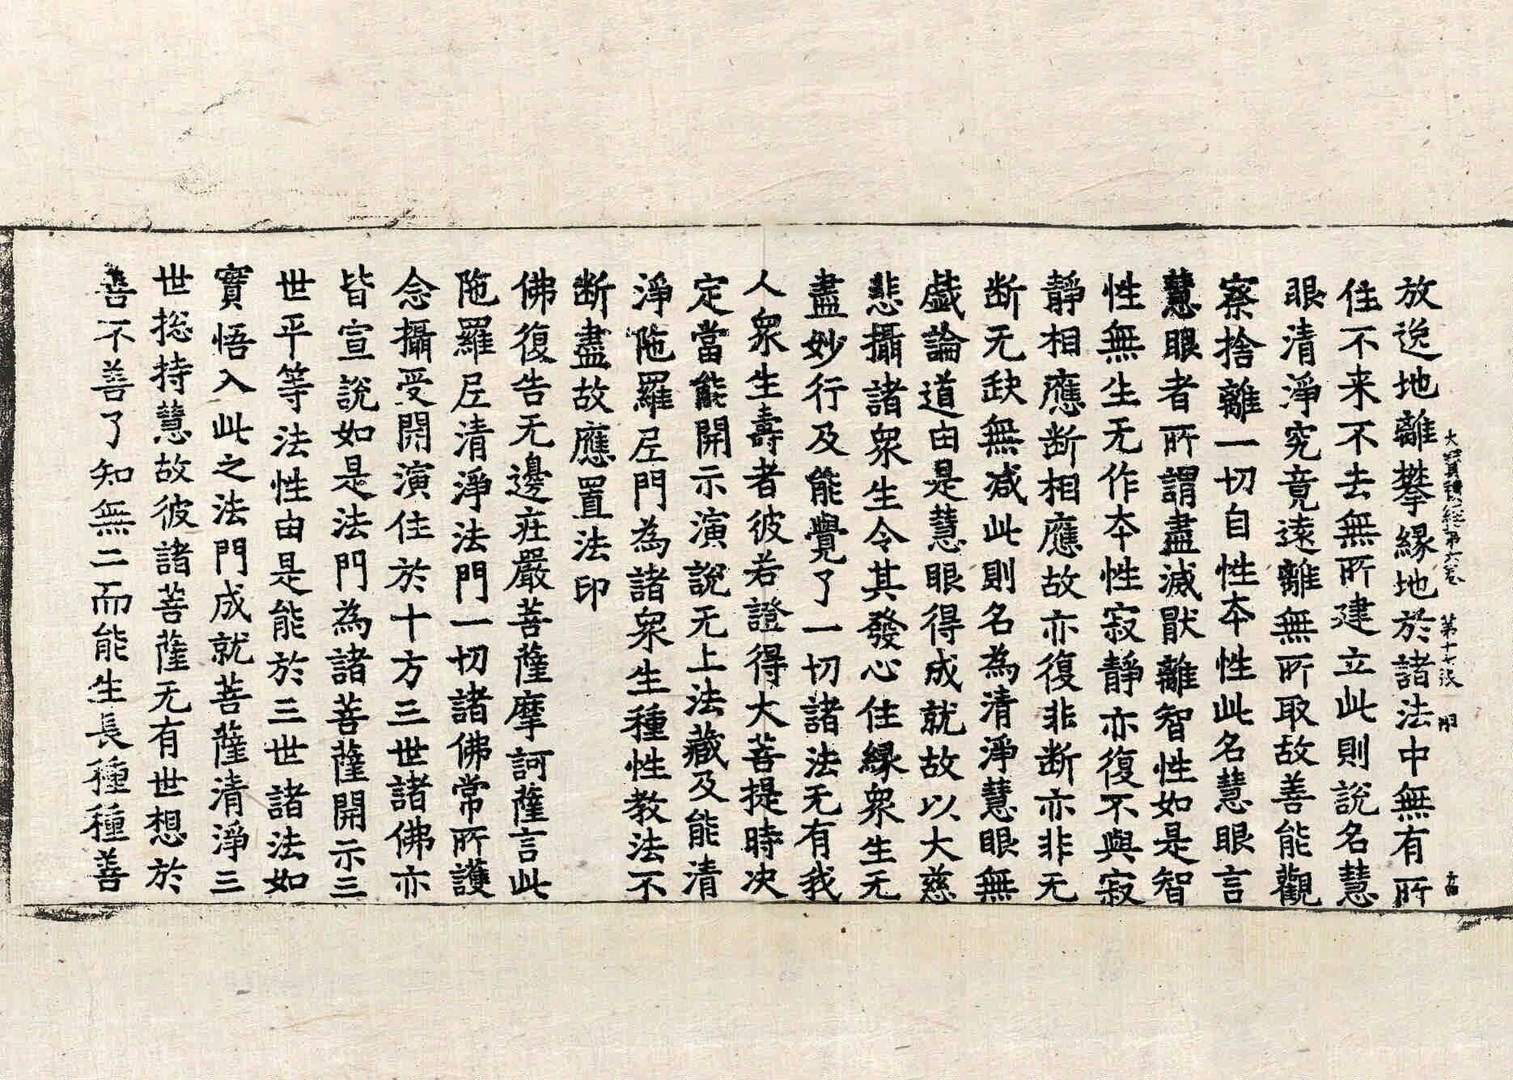 大寶積經第六卷 第十七張 用
放逸地離攀緣地於諸法中無有所
住不来不去無所建立此則說名慧
眼清淨究竟遠離無所取故善能觀
察捨離一切自性本性此名慧眼言
慧眼者所謂盡滅猒離智性如是智
性無生无作本性寂靜亦復不與寂
靜相應断相應故亦復非断亦非无
断无缺無減此則名為清淨慧眼無
戲論道由是慧眼得成就故以大慈
悲攝諸衆生令其發心住緣衆生无
盡妙行及能覺了一切諸法无有我
人衆生壽者彼若證得大菩提時决
定當能開示演說无上法藏及能清
淨陁羅尼門為諸衆生種性教法不
断盡故應置法印
佛復告无邊莊嚴菩薩摩訶薩言此
陁羅尼清淨法門一切諸佛常所護
念攝受開演住於十方三世諸佛亦
皆宣說如是法門為諸菩薩開示三
世平等法性由是能於三世諸法如
實悟入此之法門成就菩薩清淨三
世捴持慧故彼諸菩薩无有世想於
善不善了知無二而能生長種種善